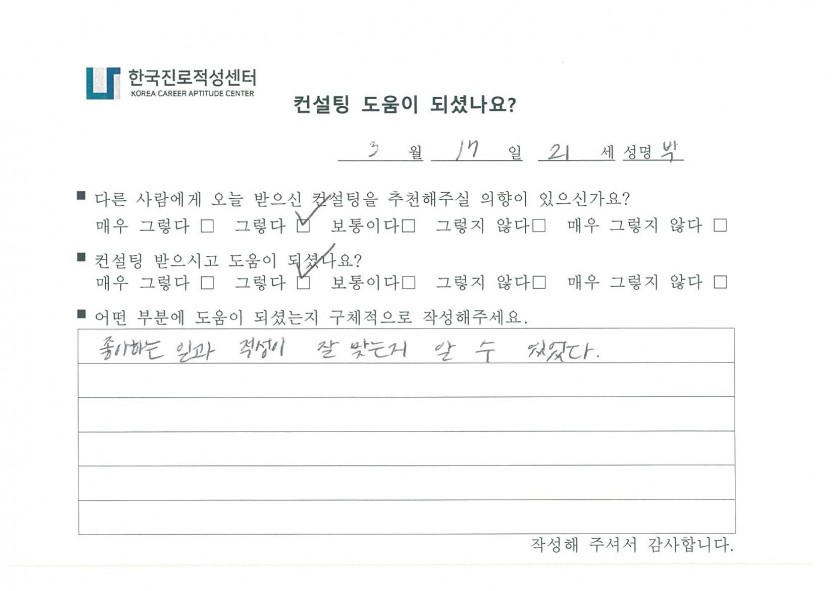 한국진로적성센터
KOREA CAREER APTITUDE CENTER
컨설팅 도움이 되셨나요?
3 월 17 일 21 세 성명 박
■ 다른 사람에게 오늘 받으신 컨설팅을 추천해주실 의향이 있으신가요?
매우 그렇다 □ 그렇다 ☑ 보통이다□ 그렇지 않다□ 매우 그렇지 않다 □
■ 컨설팅 받으시고 도움이 되셨나요?
매우 그렇다 □ 그렇다 ☑ 보통이다□ 그렇지 않다□ 매우 그렇지 않다 □
■ 어떤 부분에 도움이 되셨는지 구체적으로 작성해주세요.
좋아하는 일과 적성이 잘 맞는지 알 수 있었다.
작성해 주셔서 감사합니다.